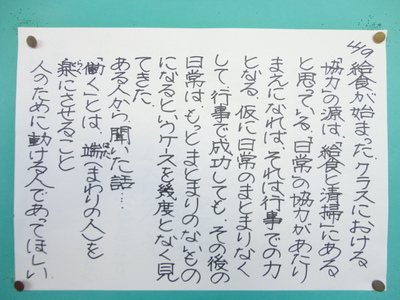 4/9 給食が始まった。クラスにおける、
「協力」の源は、「給食と清掃」にある
と思っている。「日常」の協力があたり
まえになれば、それは行事での力
となる。仮に日常のまとまりなく
して、行事で成功しても、その後の
日常は、もっとまとまりのないもの
になるというケースを幾度となく見
てきた。
ある人から聞いた話…
「働く」とは、端(まわりの人)を
楽にさせること
人のために動ける人であってほしい